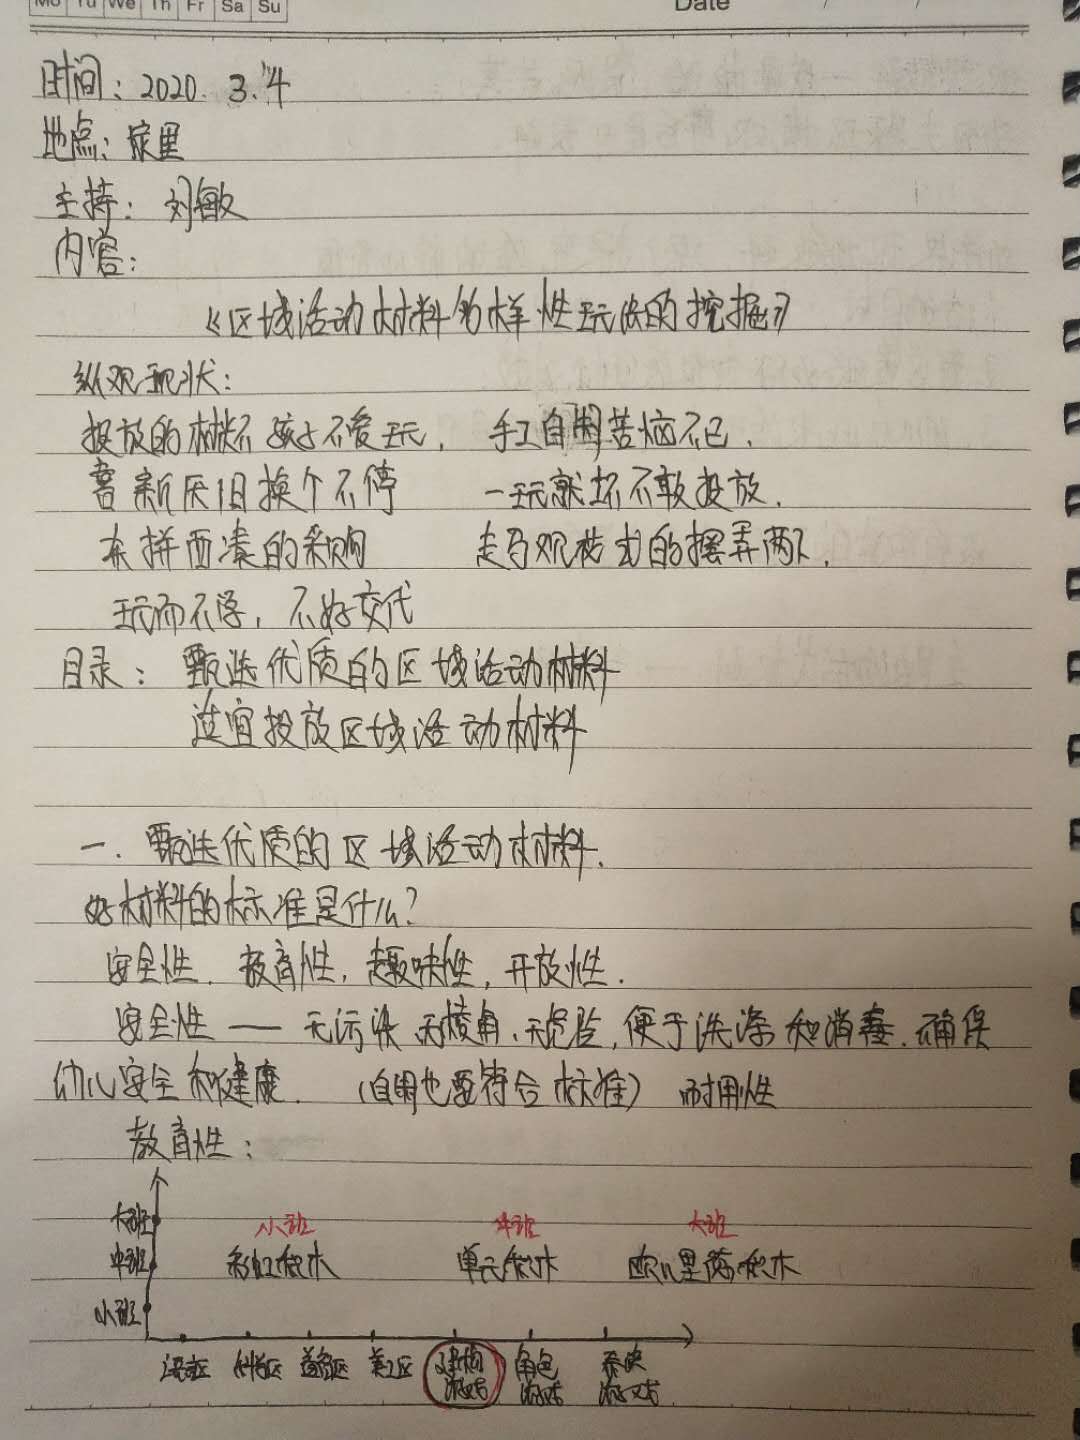 Mo Tu We Th Fr Sa Su
Date / /
时间：2020.3.4
地点：家里
主持：刘敏
内容：
《区域活动材料多样性玩法的挖掘》
纵观现状：
投放的材料孩子不爱玩，手工自制苦恼不已．
喜新厌旧换个不停 一玩就坏不敢投放．
东拼西凑的采购 走马观花式的摆弄两下．
玩而不学，不好交代
目录：甄选优质的区域活动材料
适宜投放区域活动材料
一．甄选优质的区域活动材料．
好材料的标准是什么？
安全性．教育性，趣味性，开放性．
安全性——无污染 无棱角、无危险，便于洗涤和消毒．确保
幼儿安全和健康．（自制也要符合标准） 耐用性
教育性：
大班 小班 中班 大班
中班 彩虹积木 单元积木 欧几里得积木
小班
语言区 科学区 益智区 美工区 建构游戏 角色游戏 表演游戏